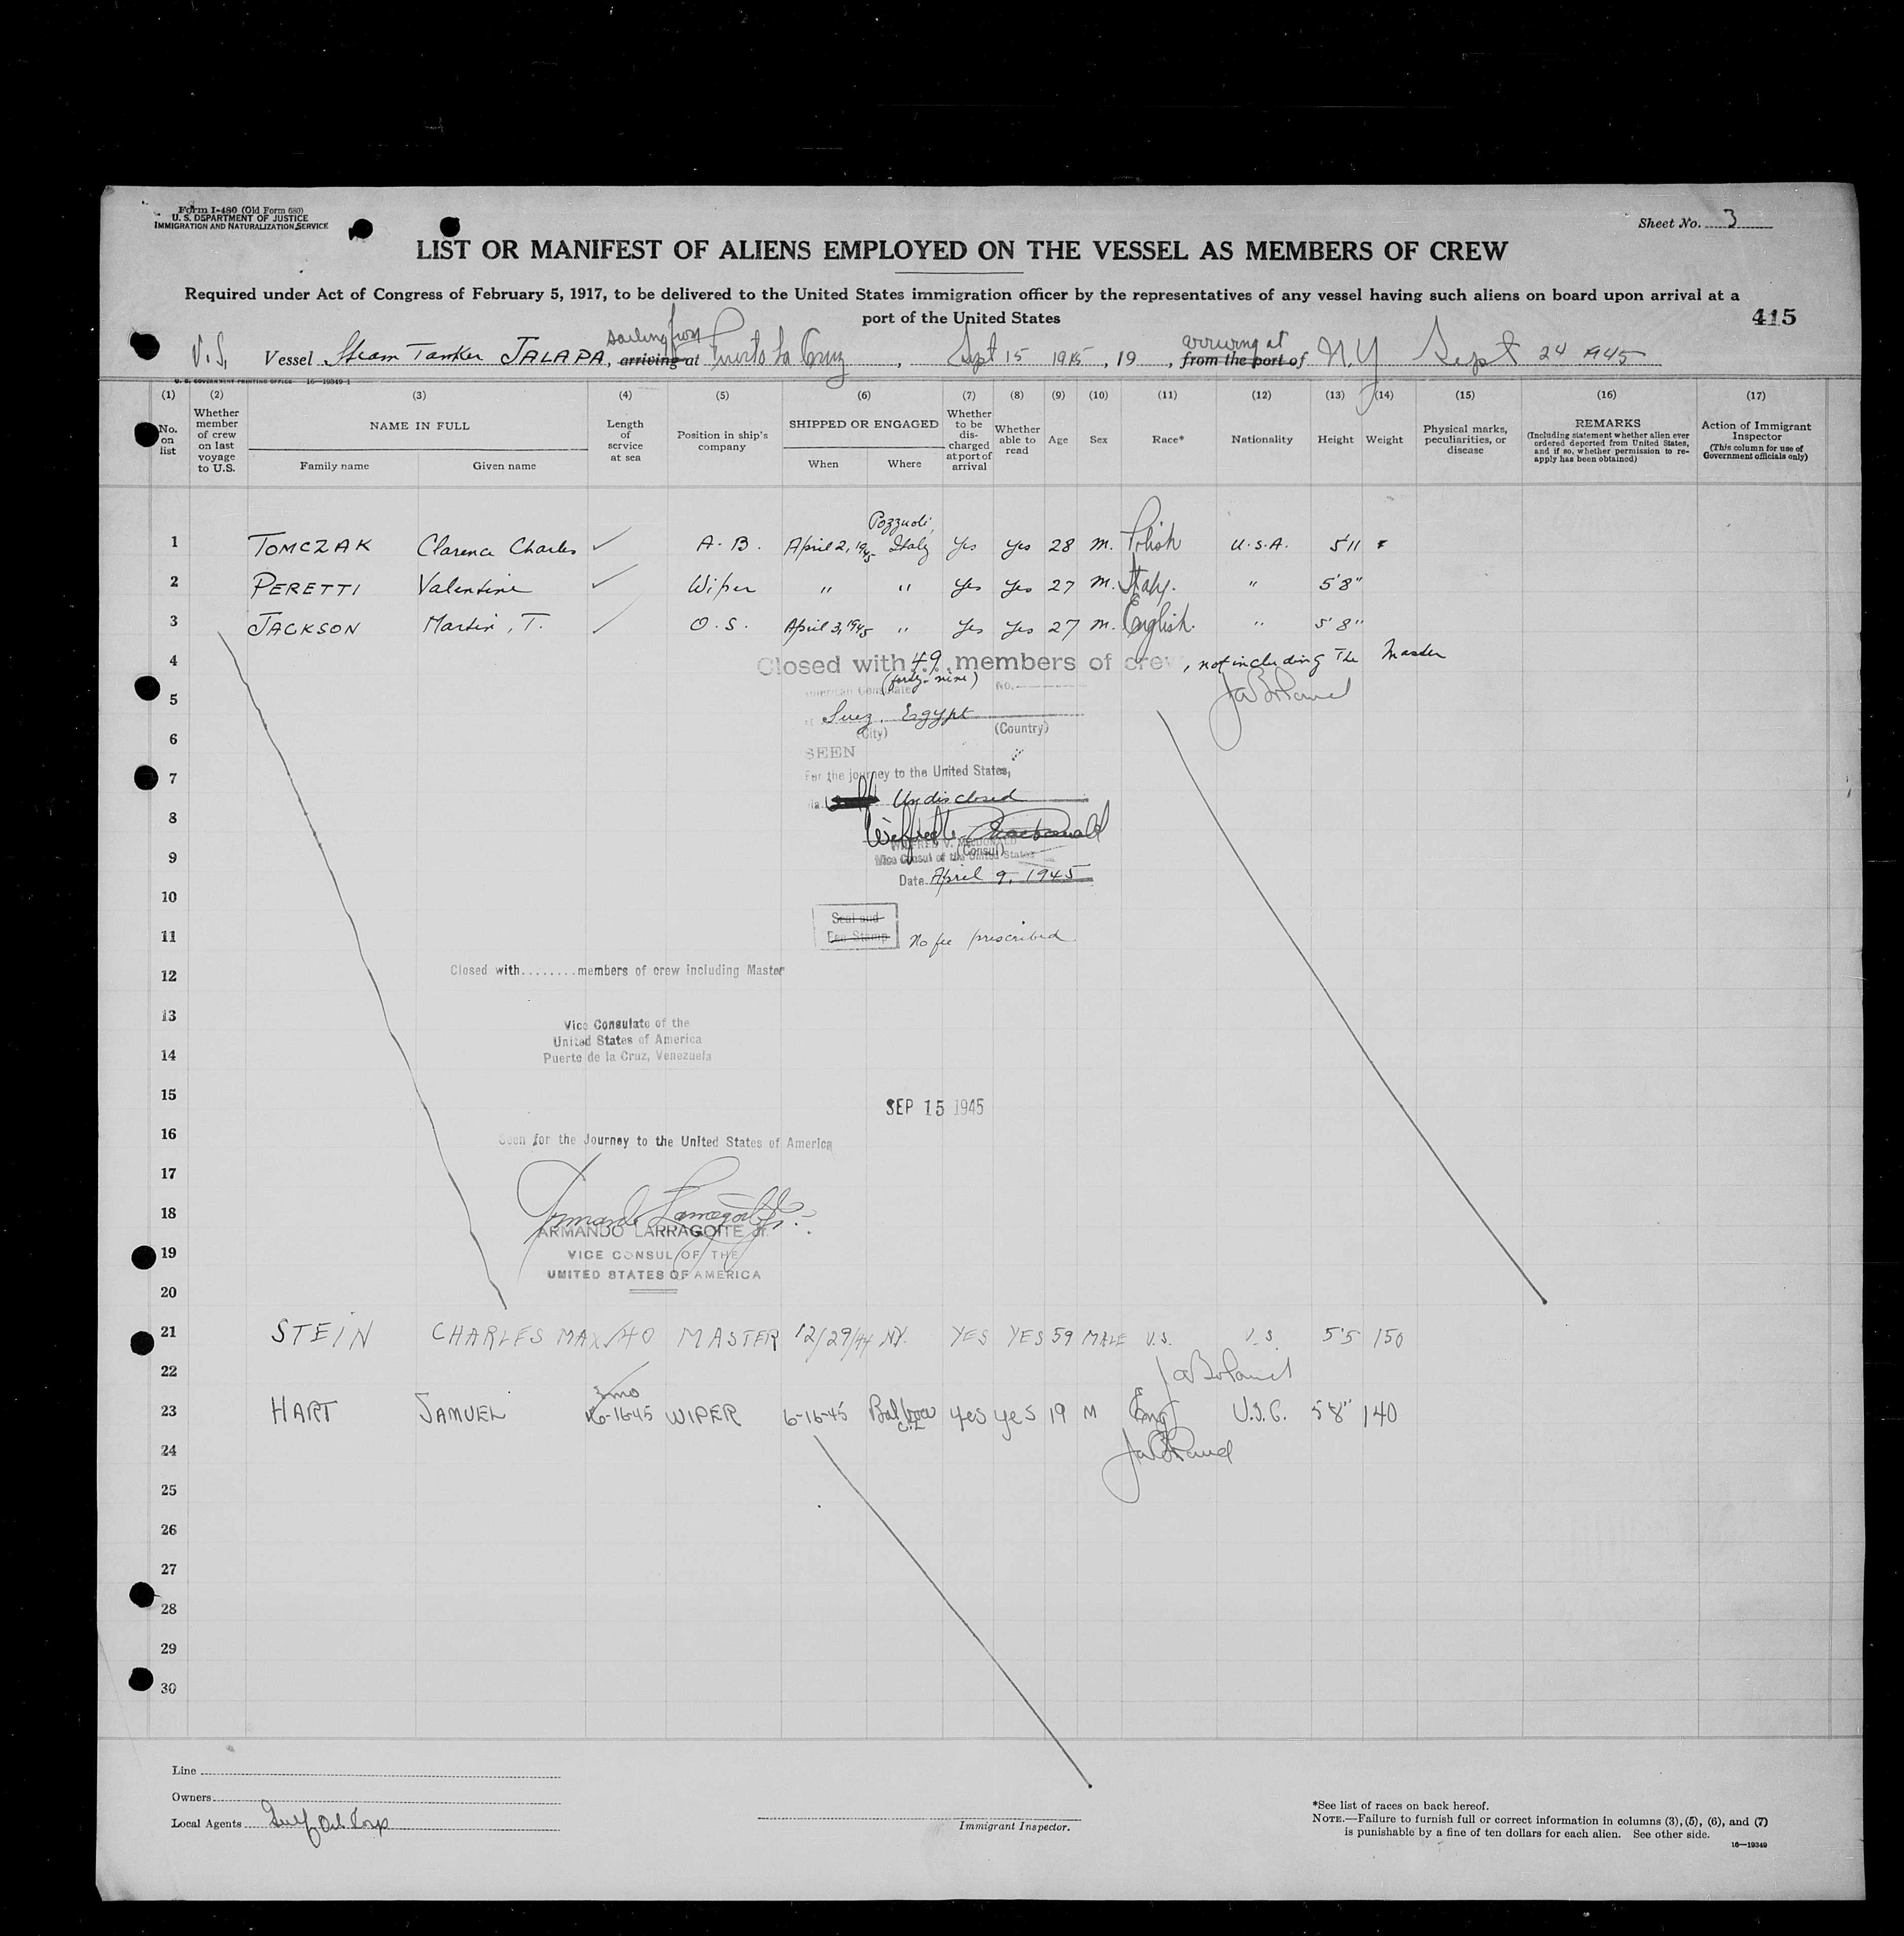 Form I-480 (Old Form 680)
U. S. DEPARTMENT OF JUSTICE
IMMIGRATION AND NATURALIZATION SERVICE
Sheet No. 3
LIST OR MANIFEST OF ALIENS EMPLOYED ON THE VESSEL AS MEMBERS OF CREW
Required under Act of Congress of February 5, 1917, to be delivered to the United States immigration officer by the representatives of any vessel having such aliens on board upon arrival at a
port of the United States
415
sailing from arriving at
V.S. Vessel Steam Tanker JALAPA, arriving at Puerto La Cruz, Sept 15 1945, 19, from the port of N.Y Sept 24 1945
U. S. GOVERNMENT PRINTING OFFICE 16—19349-1
(1) (2) (3) (4) (5) (6) (7) (8) (9) (10) (11) (12) (13) (14) (15) (16) (17)
No. on list
Whether member of crew on last voyage to U.S.
NAME IN FULL
Family name Given name
Length of service at sea
Position in ship's company
SHIPPED OR ENGAGED
When Where
Whether to be discharged at port of arrival
Whether able to read
Age
Sex
Race*
Nationality
Height
Weight
Physical marks, peculiarities, or disease
REMARKS
(Including statement whether alien ever ordered deported from United States, and if so, whether permission to reapply has been obtained)
Action of Immigrant Inspector
(This column for use of Government officials only)
Pozzuoli,
1 TOMCZAK Clarence Charles ✓ A.B. April 2, 1945 Italy Yes Yes 28 m. Polish U.S.A. 5'11
2 PERETTI Valentine ✓ Wiper " " Yes Yes 27 m. Italy. " 5'8"
3 JACKSON Martin, T. ✓ O.S. April 3, 1945 " Yes Yes 27 m. English. " 5'8"
4 Closed with 49 members of crew, not including The Master
(forty-nine)
American Consulate No.
5 Suez, Egypt
(City) (Country)
6
SEEN
7 For the journey to the United States,
Undisclosed
8 Wilfred V. MacDonald
WILFRED V. MACDONALD
(Consul)
9 Vice Consul of the United States
Date April 9, 1945
10
Seal and
Fee Stamp
11 No fee prescribed
12 Closed with........members of crew including Master
13 Vice Consulate of the
United States of America
14 Puerto de la Cruz, Venezuela
15 SEP 15 1945
16 Seen for the Journey to the United States of America
17
18 Armando Larragoite Jr.
ARMANDO LARRAGOITE Jr.
19 VICE CONSUL OF THE
UNITED STATES OF AMERICA
20
21 STEIN CHARLES MAX 40 MASTER 12/29/44 NY. YES YES 59 MALE U.S. U.S. 5'5 150
22
3 mo
23 HART SAMUEL 6-16-45 WIPER 6-16-45 Balboa C.Z. yes yes 19 M Eng U.S.C. 5'8" 140
24
25
26
27
28
29
30
Line
Owners
Local Agents Gulf Oil Corp
Immigrant Inspector.
*See list of races on back hereof.
NOTE.—Failure to furnish full or correct information in columns (3), (5), (6), and (7)
is punishable by a fine of ten dollars for each alien. See other side.
16—19349